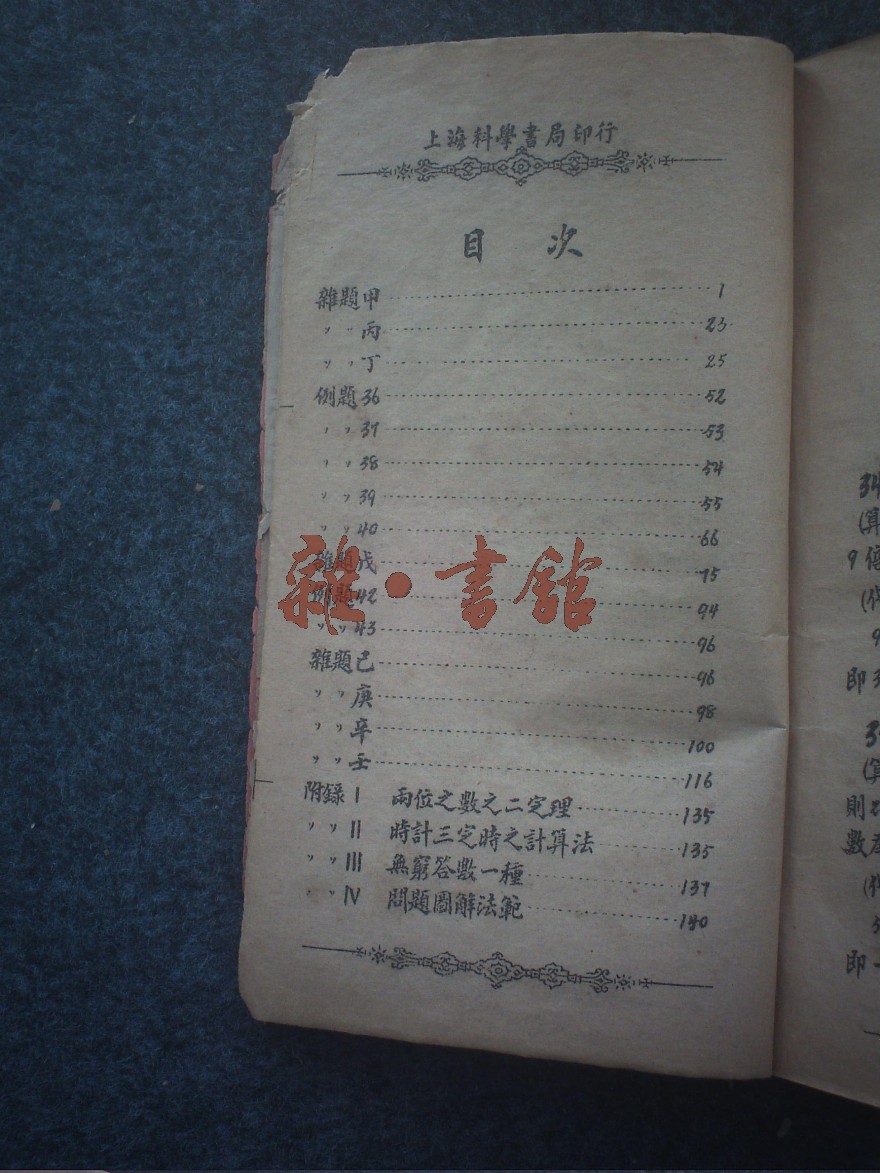 上海科學書局印行
目 次
雜題甲 1
〃〃丙 23
〃〃丁 25
例題36 52
〃〃37 53
〃〃38 54
〃〃39 55
〃〃40 66
雜題戊 75
例題42 94
〃〃43 96
雜題己 96
〃〃庚 98
〃〃辛 100
〃〃壬 116
附錄I 兩位之數之二定理 135
〃〃II 時計三定時之計算法 135
〃〃III 無窮答數一種 137
〃〃IV 問題圖解法範 140
雜·書館
34
(算
9倍
(代
9
即3
3
(算
則2
數為
(代
即一